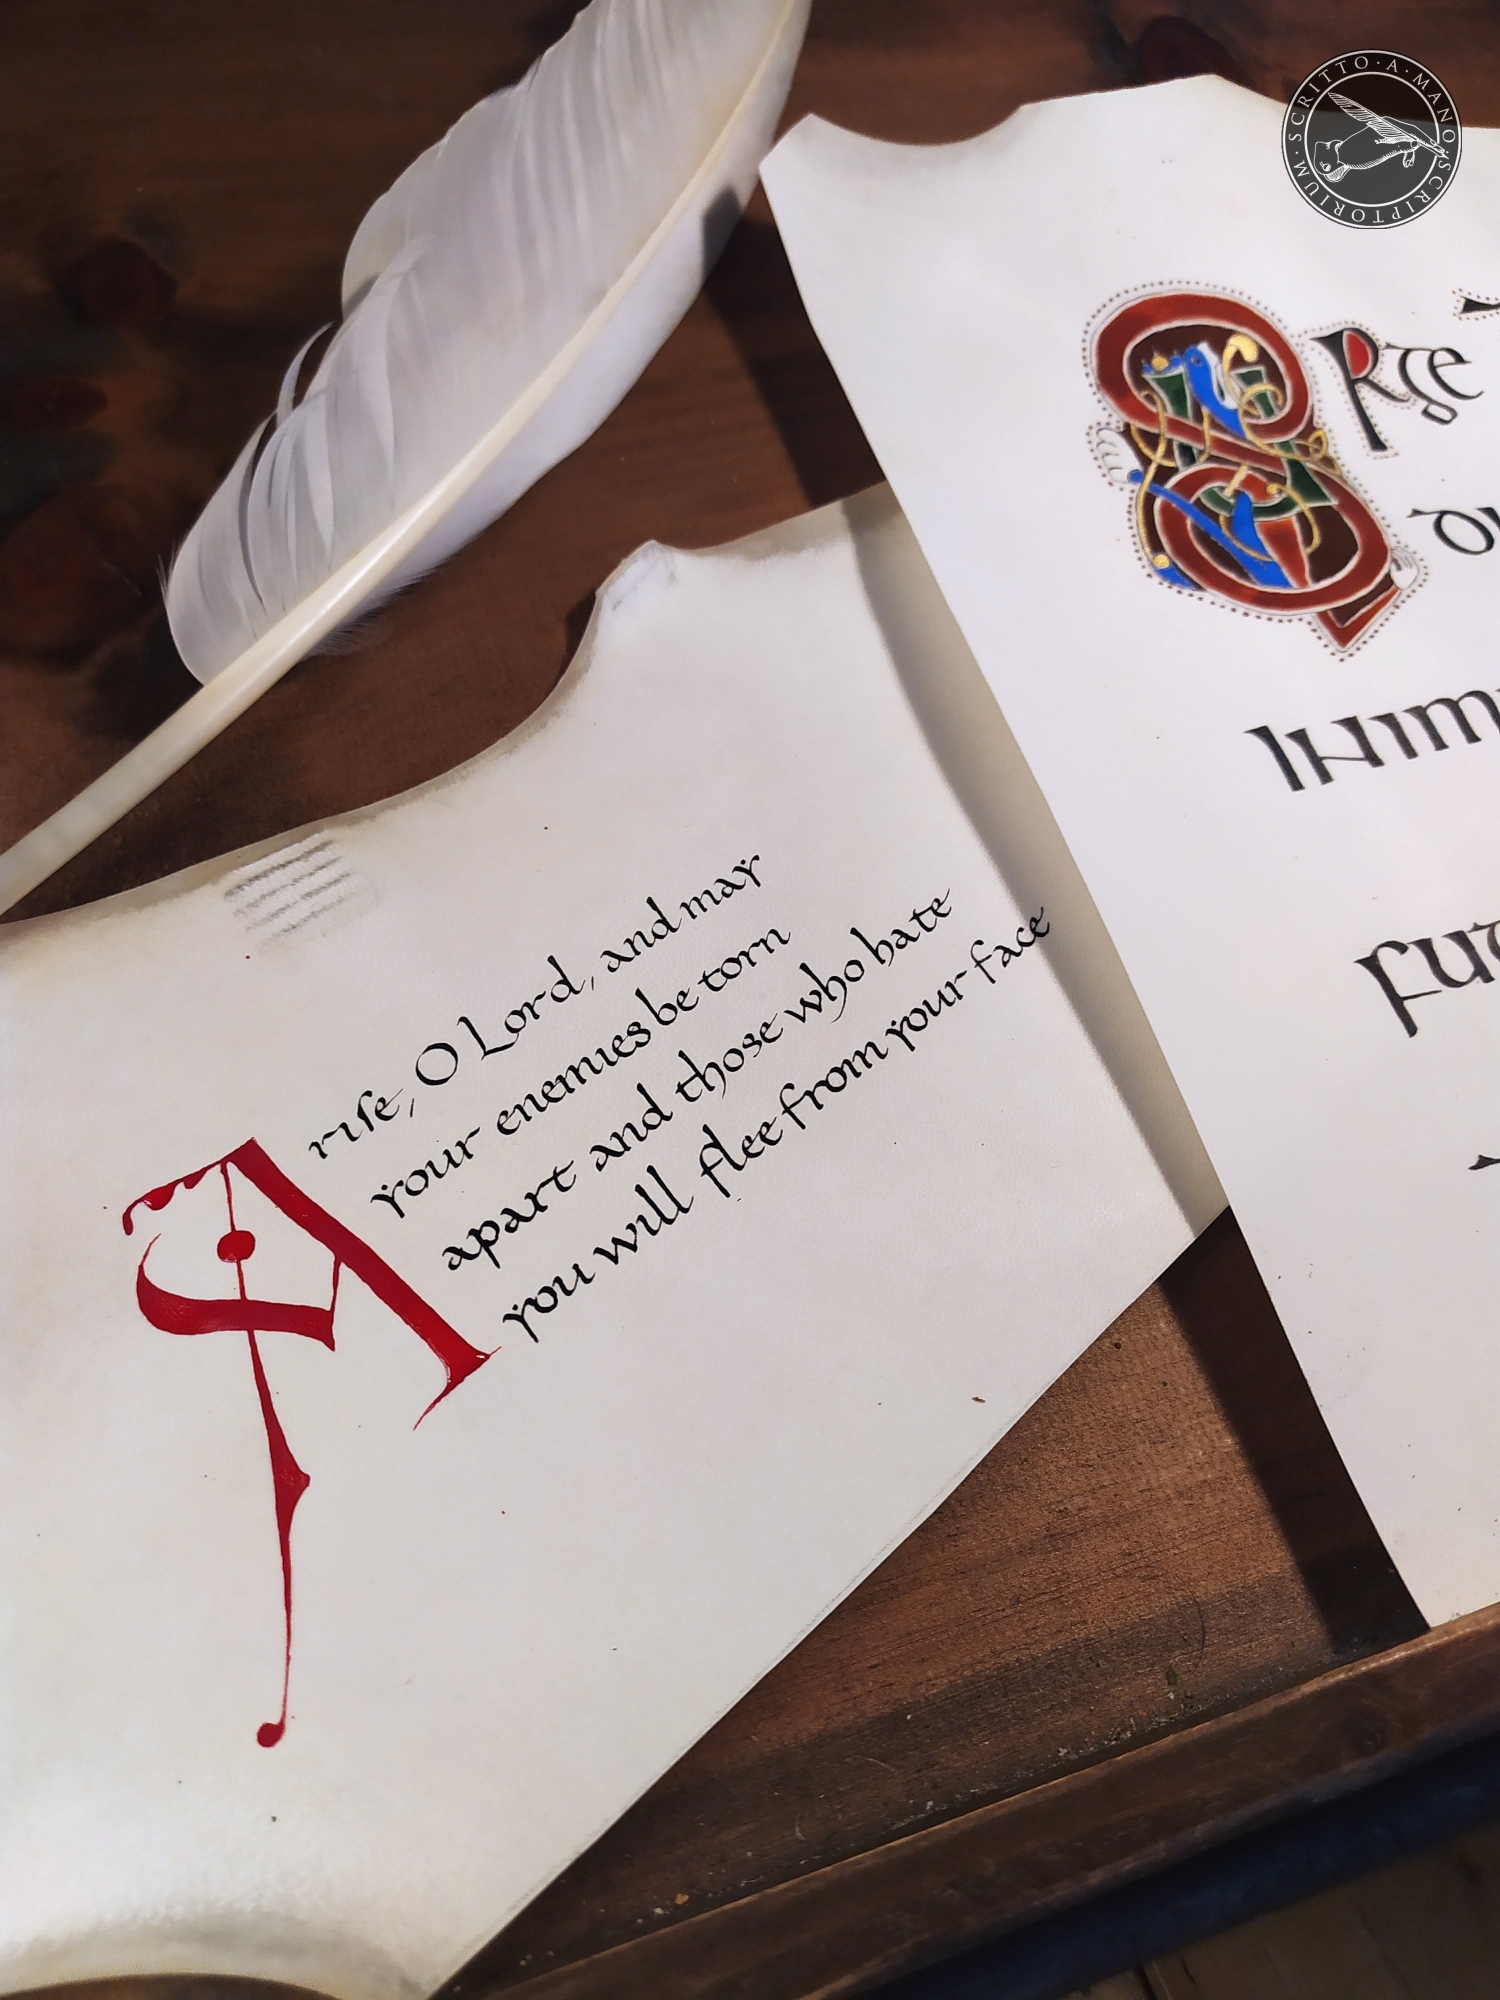 SCRITTO·A·MANO·SCRIPTORIUM·
Ariſe, O Lord, and may
your enemies be torn
apart and those who hate
you will flee from your face
INIM